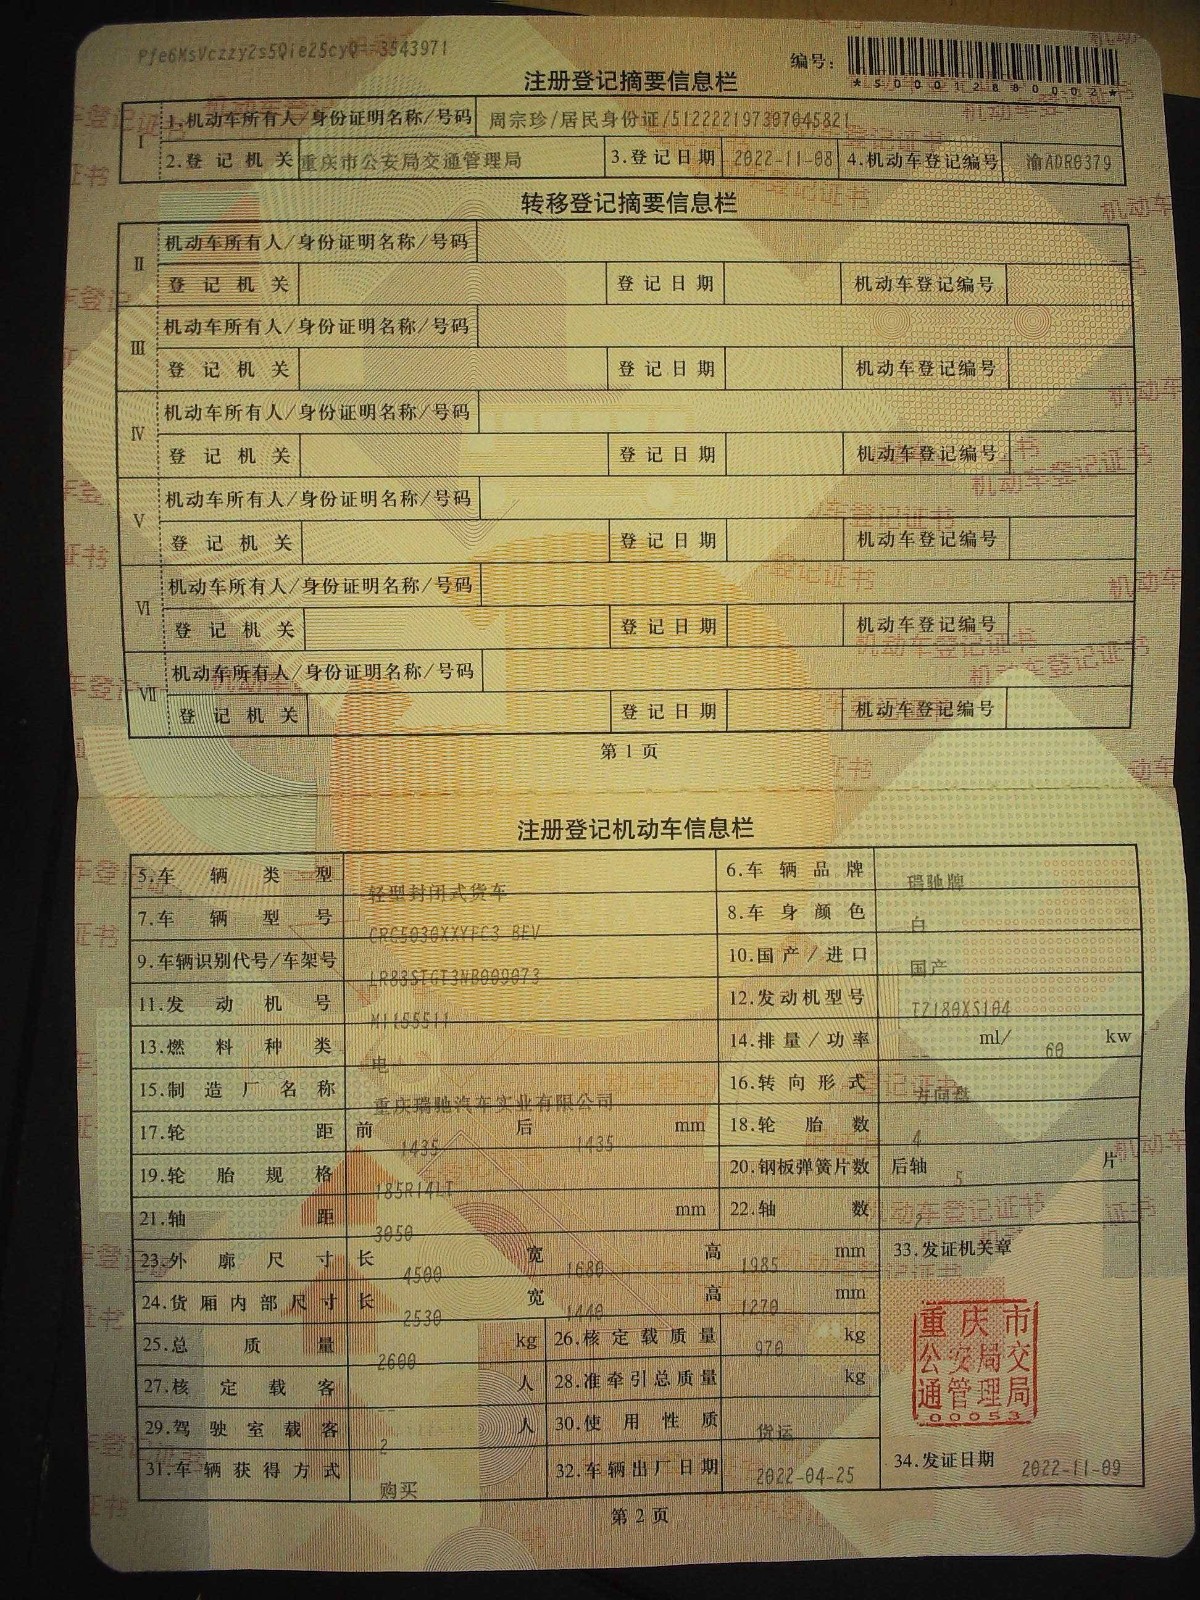 Pfe6MsVczzy2s5Qie25cyQ==3543971
编号:
*500012880002*
注册登记摘要信息栏
I 1.机动车所有人/身份证明名称/号码 周宗珍/居民身份证/512222197307045821
2.登记机关 重庆市公安局交通管理局 3.登记日期 2022-11-08 4.机动车登记编号 渝ADR0379
转移登记摘要信息栏
II 机动车所有人/身份证明名称/号码
登记机关 登记日期 机动车登记编号
III 机动车所有人/身份证明名称/号码
登记机关 登记日期 机动车登记编号
IV 机动车所有人/身份证明名称/号码
登记机关 登记日期 机动车登记编号
V 机动车所有人/身份证明名称/号码
登记机关 登记日期 机动车登记编号
VI 机动车所有人/身份证明名称/号码
登记机关 登记日期 机动车登记编号
VII 机动车所有人/身份证明名称/号码
登记机关 登记日期 机动车登记编号
第1页
注册登记机动车信息栏
5.车辆类型 轻型封闭式货车 6.车辆品牌 瑞驰牌
7.车辆型号 CRC5030XXYFC3 BEV 8.车身颜色 白
9.车辆识别代号/车架号 LR83STGT3NB009073 10.国产/进口 国产
11.发动机号 M1155511 12.发动机型号 TZ180XS104
13.燃料种类 电 14.排量/功率 -- ml/ 60 kw
15.制造厂名称 重庆瑞驰汽车实业有限公司 16.转向形式 方向盘
17.轮距 前 1435 后 1435 mm 18.轮胎数 4
19.轮胎规格 185R14LT 20.钢板弹簧片数 后轴 5 片
21.轴距 3050 mm 22.轴数 2
23.外廓尺寸 长 4500 宽 1680 高 1985 mm 33.发证机关章
24.货厢内部尺寸 长 2530 宽 1440 高 1270 mm
25.总质量 2600 kg 26.核定载质量 970 kg
27.核定载客 -- 人 28.准牵引总质量 kg
29.驾驶室载客 2 人 30.使用性质 货运
31.车辆获得方式 购买 32.车辆出厂日期 2022-04-25 34.发证日期 2022-11-09
重庆市
公安局交
通管理局
00053
第2页